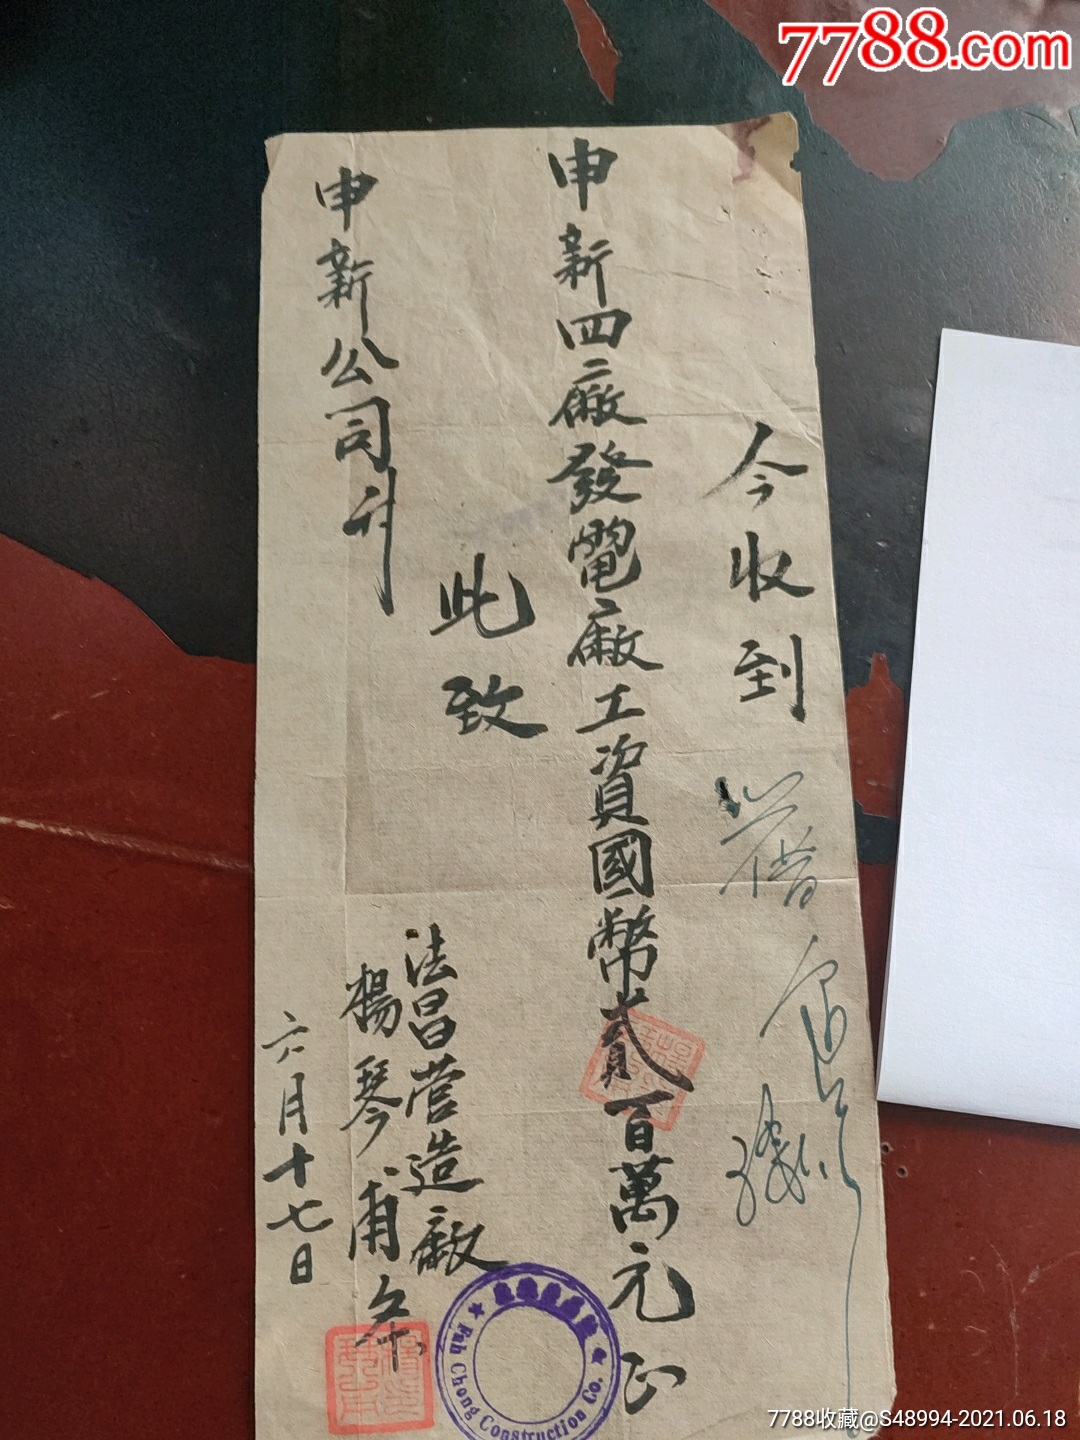 7788.com
今收到
申新四廠發電廠工資國幣貳百萬元正
此致
申新公司
法昌营造廠
楊琴甫
六月十七日
Fah Chong Construction Co.
7788收藏@S48994-2021.06.18